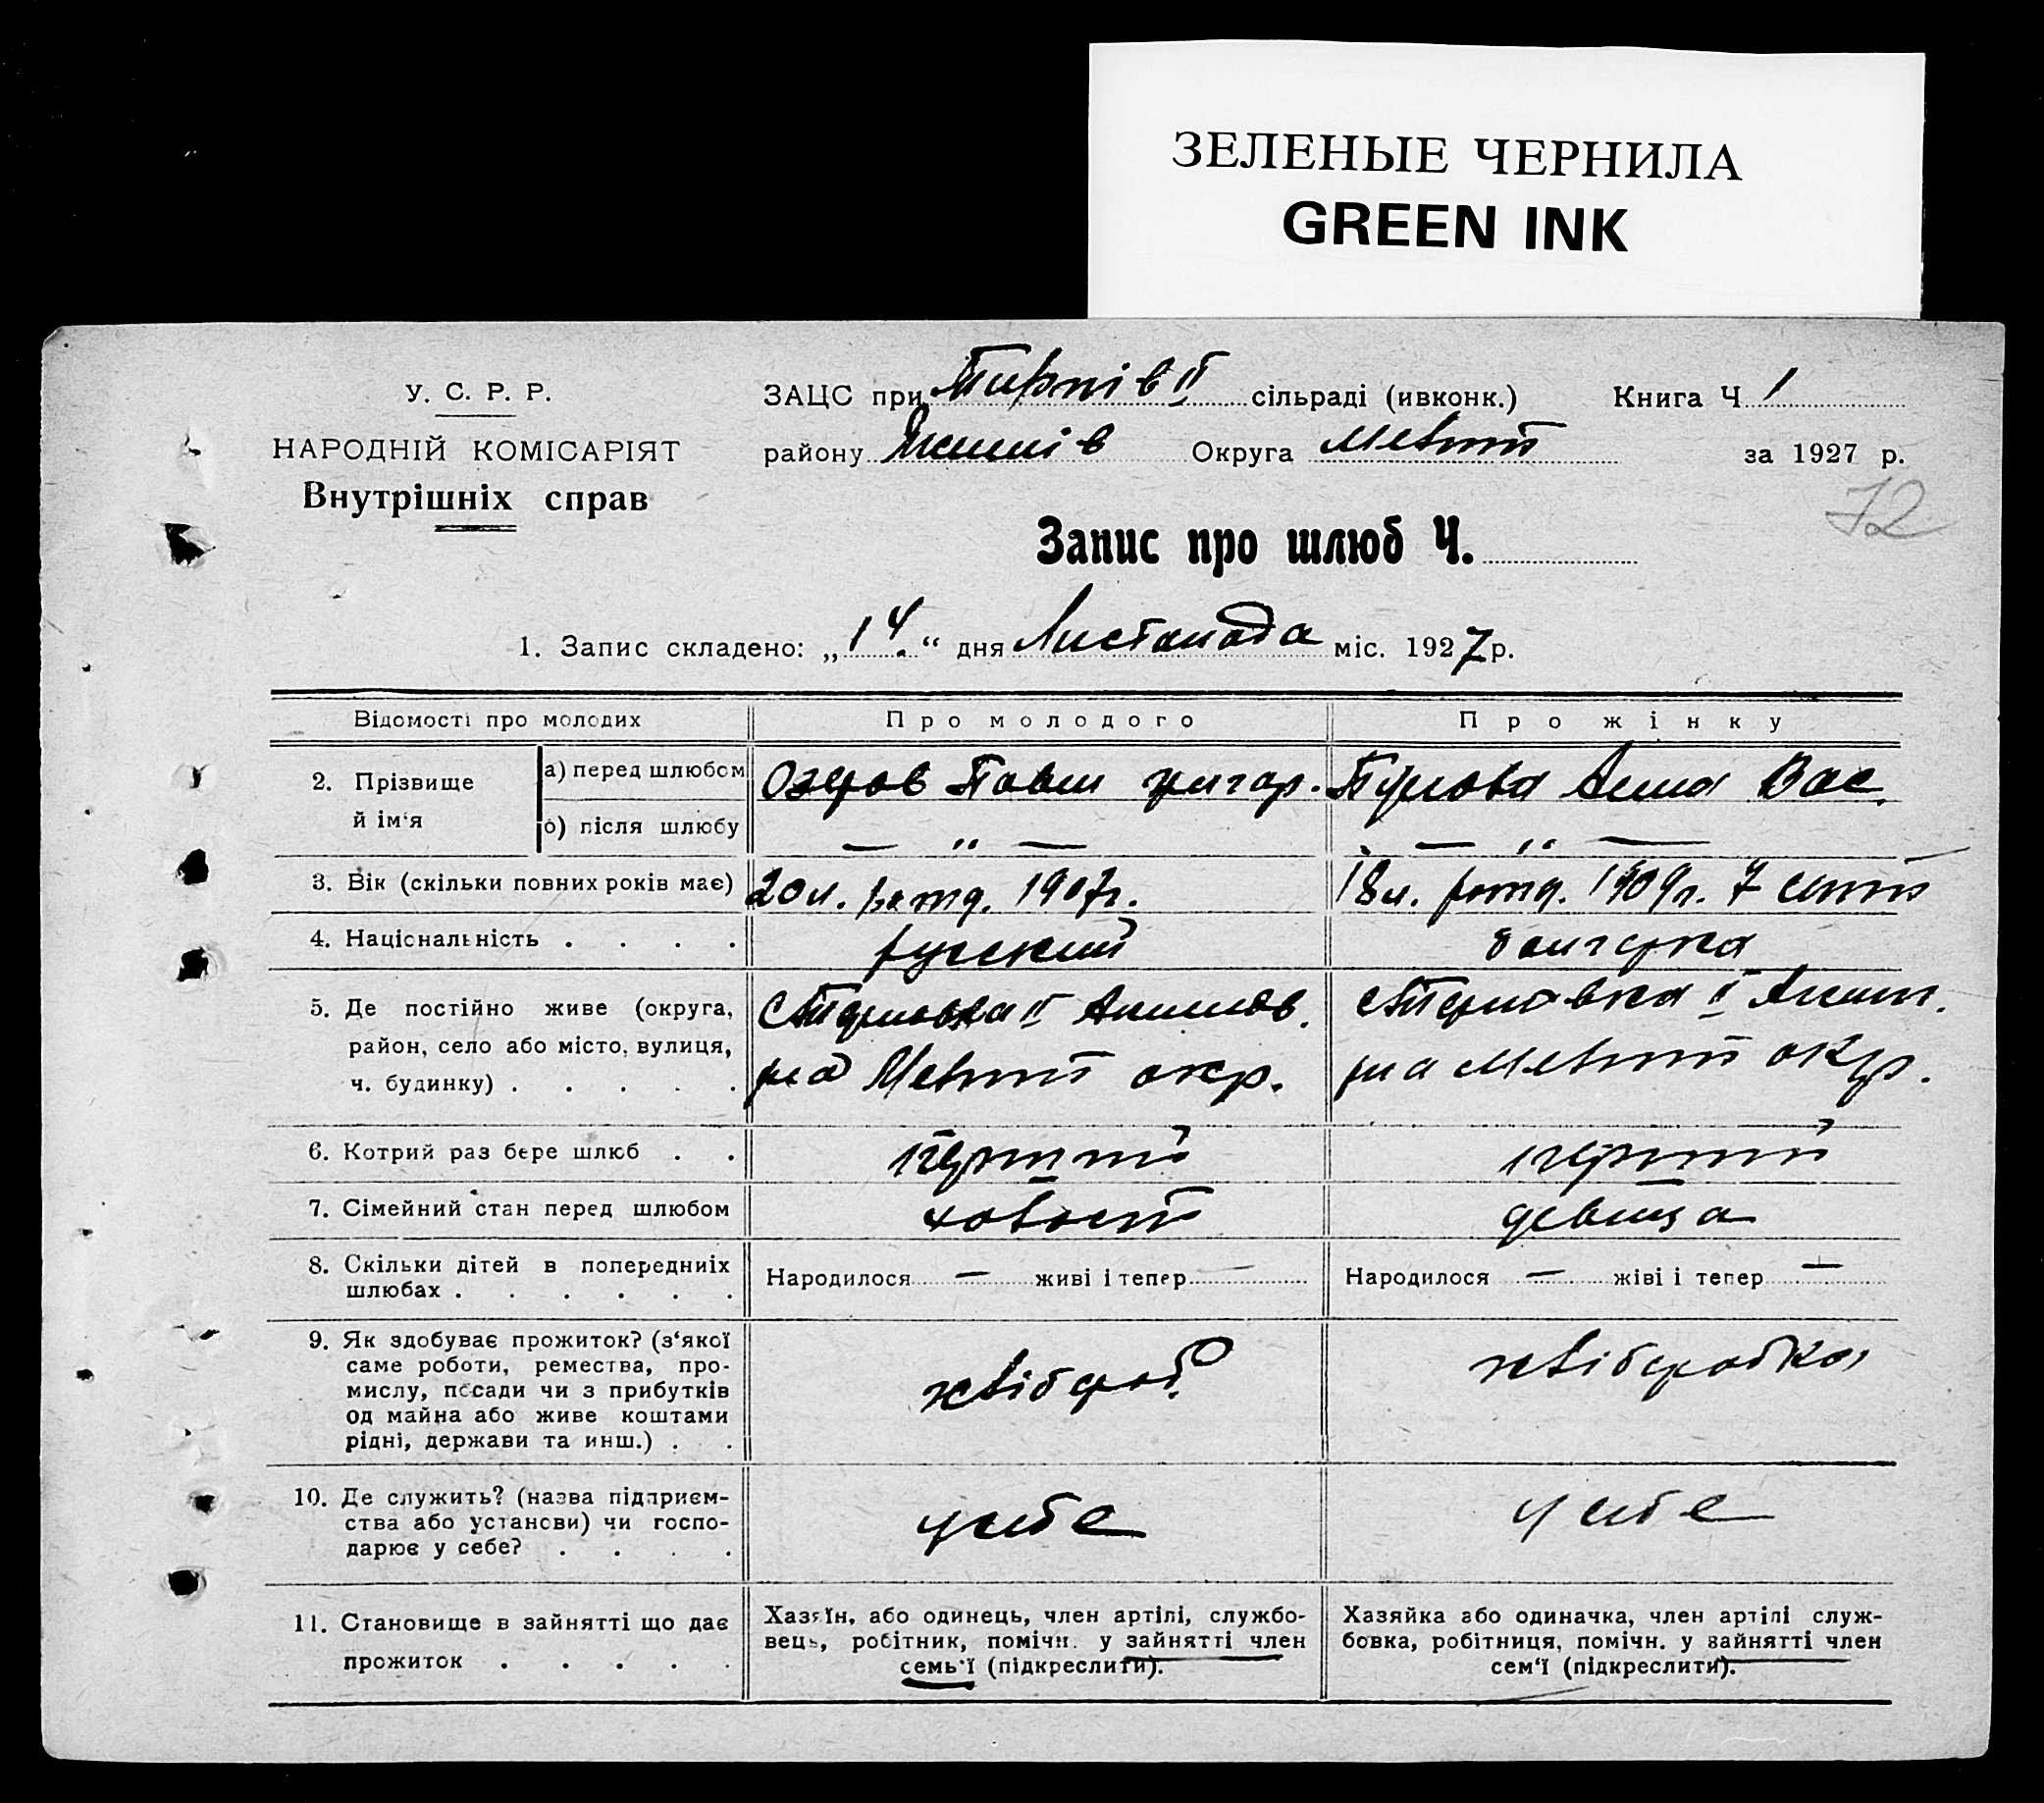 ЗЕЛЕНЫЕ ЧЕРНИЛА
GREEN INK
У. С. Р. Р.
НАРОДНІЙ КОМІСАРІЯТ
Внутрішніх справ
ЗАЦС при Тирнів II сільраді (ивконк.) Книга Ч 1
району Якимів Округа Меліт за 1927 р.
72
Запис про шлюб Ч.
1. Запис складено: „14.“ дня Листопада міс. 1927 р.
Відомості про молодих Про молодого Про жінку
2. Прізвище й ім‘я
а) перед шлюбом Озеров Павел Григор. Анна Вас.
б) після шлюбу — „ — — „ —
3. Вік (скільки повних років має) 20 л. рожд. 1907 г. 18 л. рожд. 1909 г. 7
4. Національність . . . . русский болгарка
5. Де постійно живе (округа, район, село або місто, вулиця, ч. будинку) . . . . .
с Терновка II Акимов.
р-на Меліт окр.
с Терновка II Аким.
р-на Меліт окр.
6. Котрий раз бере шлюб . . перший перший
7. Сімейний стан перед шлюбом холост девица
8. Скільки дітей в попередниіх шлюбах . . . . . .
Народилося — живі і тепер —
Народилося — жіві і тепер —
9. Як здобуває прожиток? (з‘якої
саме роботи, ремества, про-
мислу, посади чи з прибутків
од майна або живе коштами
рідні, держави та инш.) . .
хлібороб
хліборобка
10. Де служить? (назва підприєм-
ства або установи) чи госпо-
дарює у себе? . . . .
у себе
у себе
11. Становище в зайнятті що дає
прожиток . . . . .
Хазяїн, або одинець, член артілі, службо-
вець, робітник, помічн. у зайнятті член
семь‘ї (підкреслити).
Хазяйка або одиначка, член артілі служ-
бовка, робітниця, помічн. у зайнятті член
сем‘ї (підкреслити).